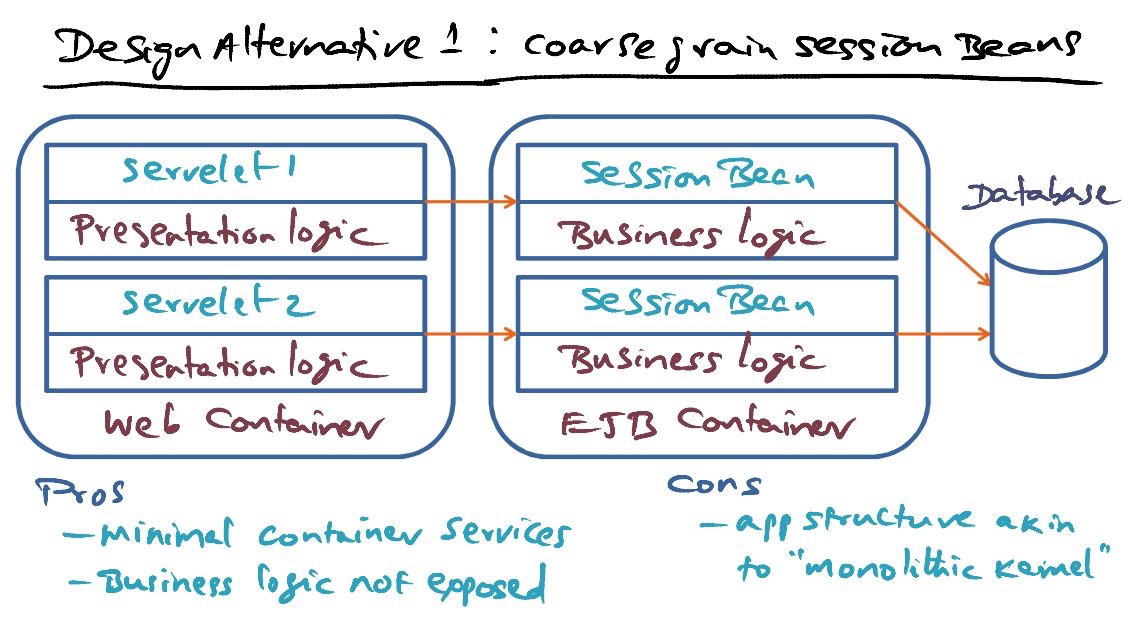 Design Alternative 1 : coarse grain session Beans
servelet 1
Presentation logic
servelet 2
Presentation logic
Web Container
Session Bean
Business logic
Session Bean
Business logic
EJB Container
Database
Pros
- Minimal container services
- Business logic not exposed
Cons
- app structure akin
to "monolithic kernel"